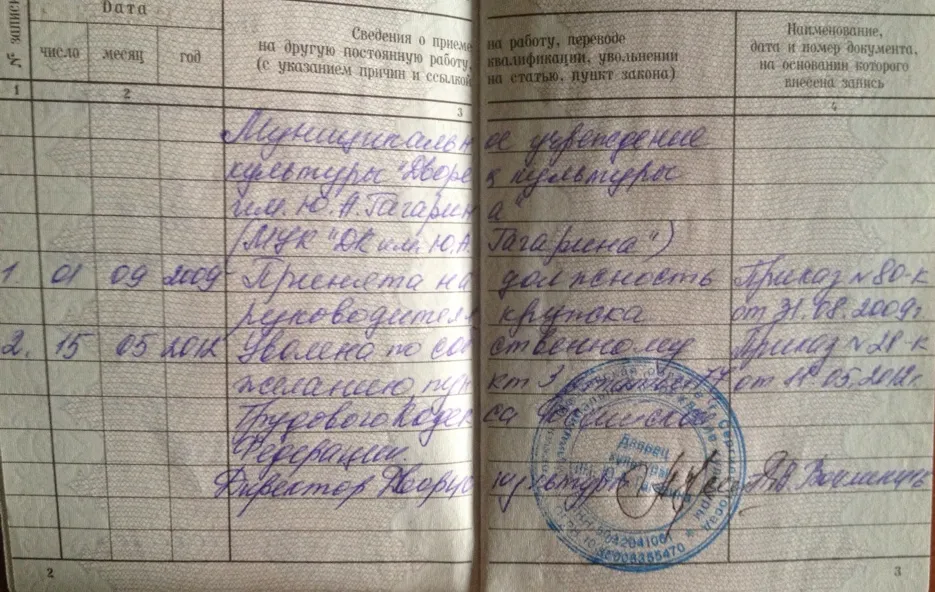 № записи
Дата
число месяц год
Сведения о приеме на работу, переводе
на другую постоянную работу, квалификации, увольнении
(с указанием причин и ссылкой на статью, пункт закона)
Наименование,
дата и номер документа,
на основании которого
внесена запись
1 2 3 4
Муниципальное учреждение
культуры "Дворец культуры
им. Ю.А.Гагарина"
(МУК "ДК им. Ю.А.Гагарина")
1. 01 09 2009 Принята на должность Приказ № 80-к
руководителя кружка от 31.08.2009г
2. 15 05 2012 Уволена по собственному Приказ № 28-к
желанию, пункт 3 статьи 77 от 11.05.2012г.
Трудового Кодекса Российской
Федерации.
Директор Дворца культуры
Дворец
культуры
2 3